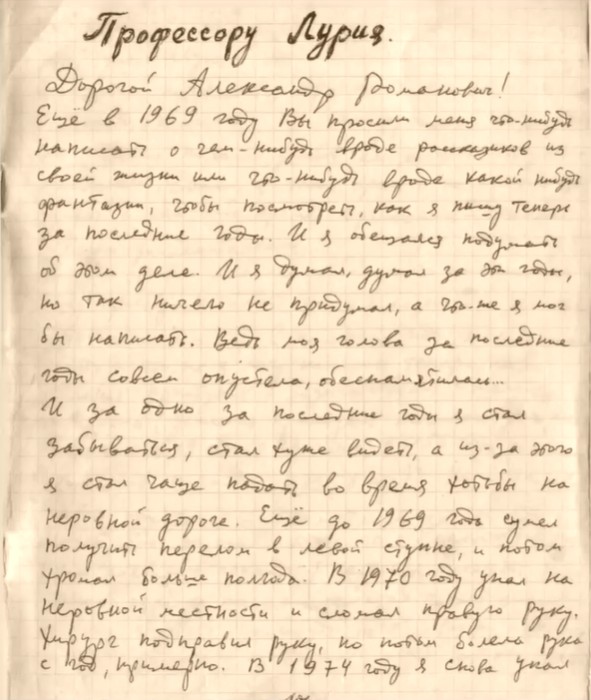 Профессору Лурия.
Дорогой Александр Романович!
Ещё в 1969 году Вы просили меня что-нибудь
написать о чем-нибудь вроде рассказиков из
своей жизни или что-нибудь вроде какой нибудь
фантазии, чтобы посмотреть, как я пишу теперь
за последние годы. И я обещался подумать
об этом деле. И я думал, думал за эти годы,
но так ничего не придумал, а что-же я мог
бы написать. Ведь моя голова за последние
годы совсем опустела, обеспамятилась...
И за одно за последние годы я стал
забываться, стал хуже видеть, а из-за этого
я стал чаще падать во время хотьбы на
неровной дороге. Ещё до 1969 года сумел
получить перелом в левой ступне, и потом
хромал больше полгода. В 1970 году упал на
неровной местности и сломал правую руку.
Хирург подправил руку, но потом болела рука
с год, примерно. В 1974 году я снова упал